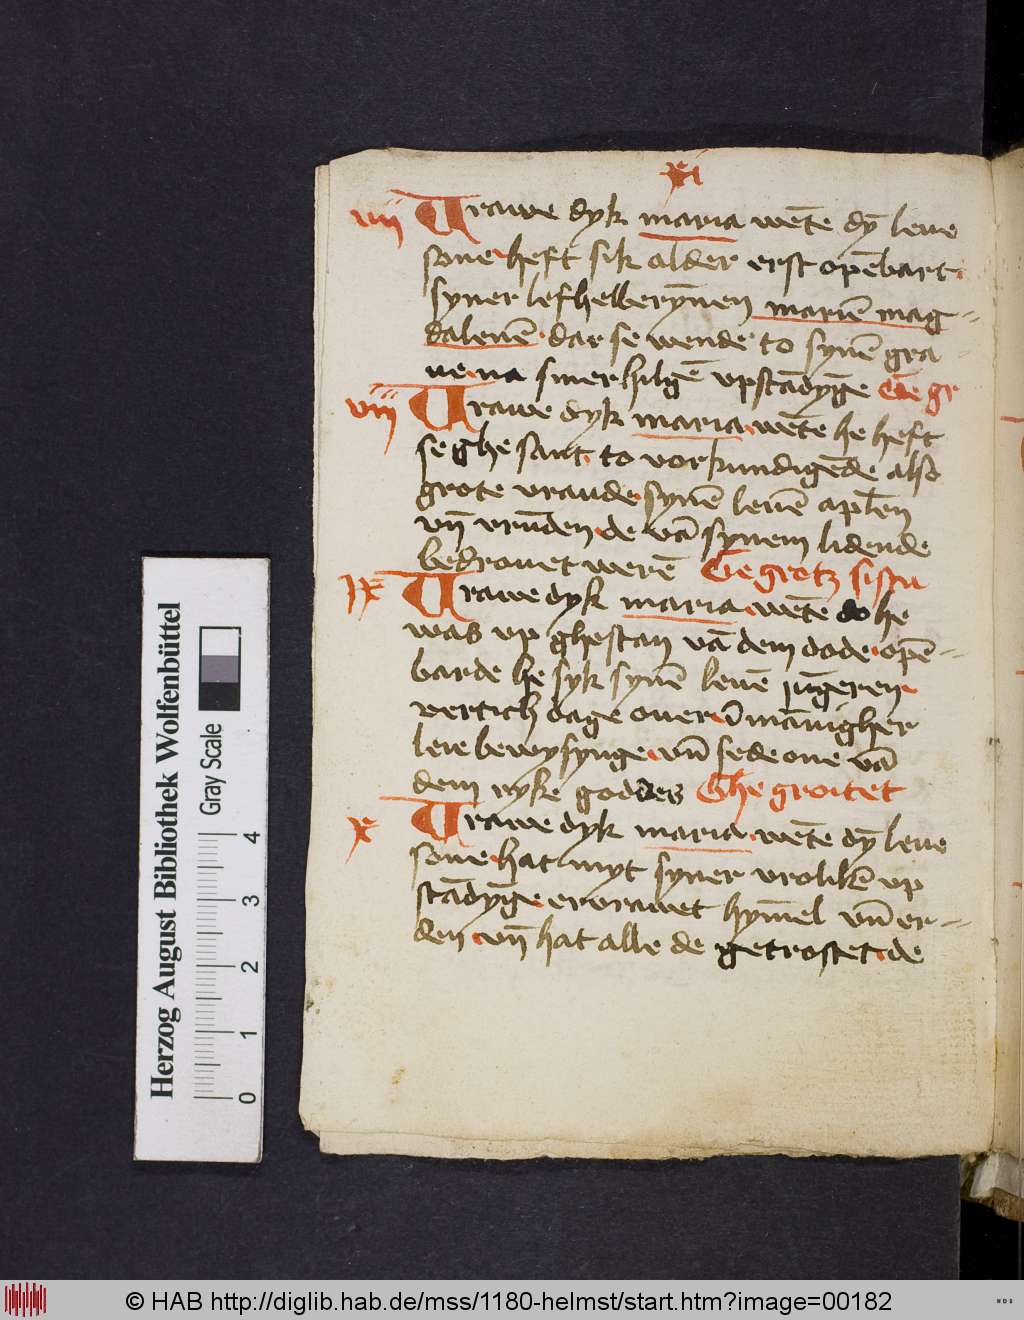 xi
vii Vrawe dyk maria wēte dȳ leue
sone heft sik alder erst opēbart
syner lefhebberȳnen mariē mag=
dalenē dar se wende to synē gra
ue na siner hilgē vpstādyge Ge gr
viii Vrawe dyk maria wēte he heft
se ghe sant to vorkundigēde also
grote vraude synē leuē apl̄en
vn̄ vrūden de vā synem lidende
bedrouet werē Gegrotz sistu
ix Vrawe dyk maria wēte do he
was vp ghestan vā dem dode opē=
barde he syk synē leuē jūgeren
vertich dage ouer ī mānigher
leie bewysynge vn̄ sede one vā
dem ryke goddes Ghe groitet
x Vrawe dyk maria wēte dȳ leue
sone hat myt syner vrolikē vp
stādyge ervrawet hȳmel vn̄ er=
den vn̄ hat alle de getrostet de
Herzog August Bibliothek Wolfenbüttel
Gray Scale
0 1 2 3 4
© HAB http://diglib.hab.de/mss/1180-helmst/start.htm?image=00182